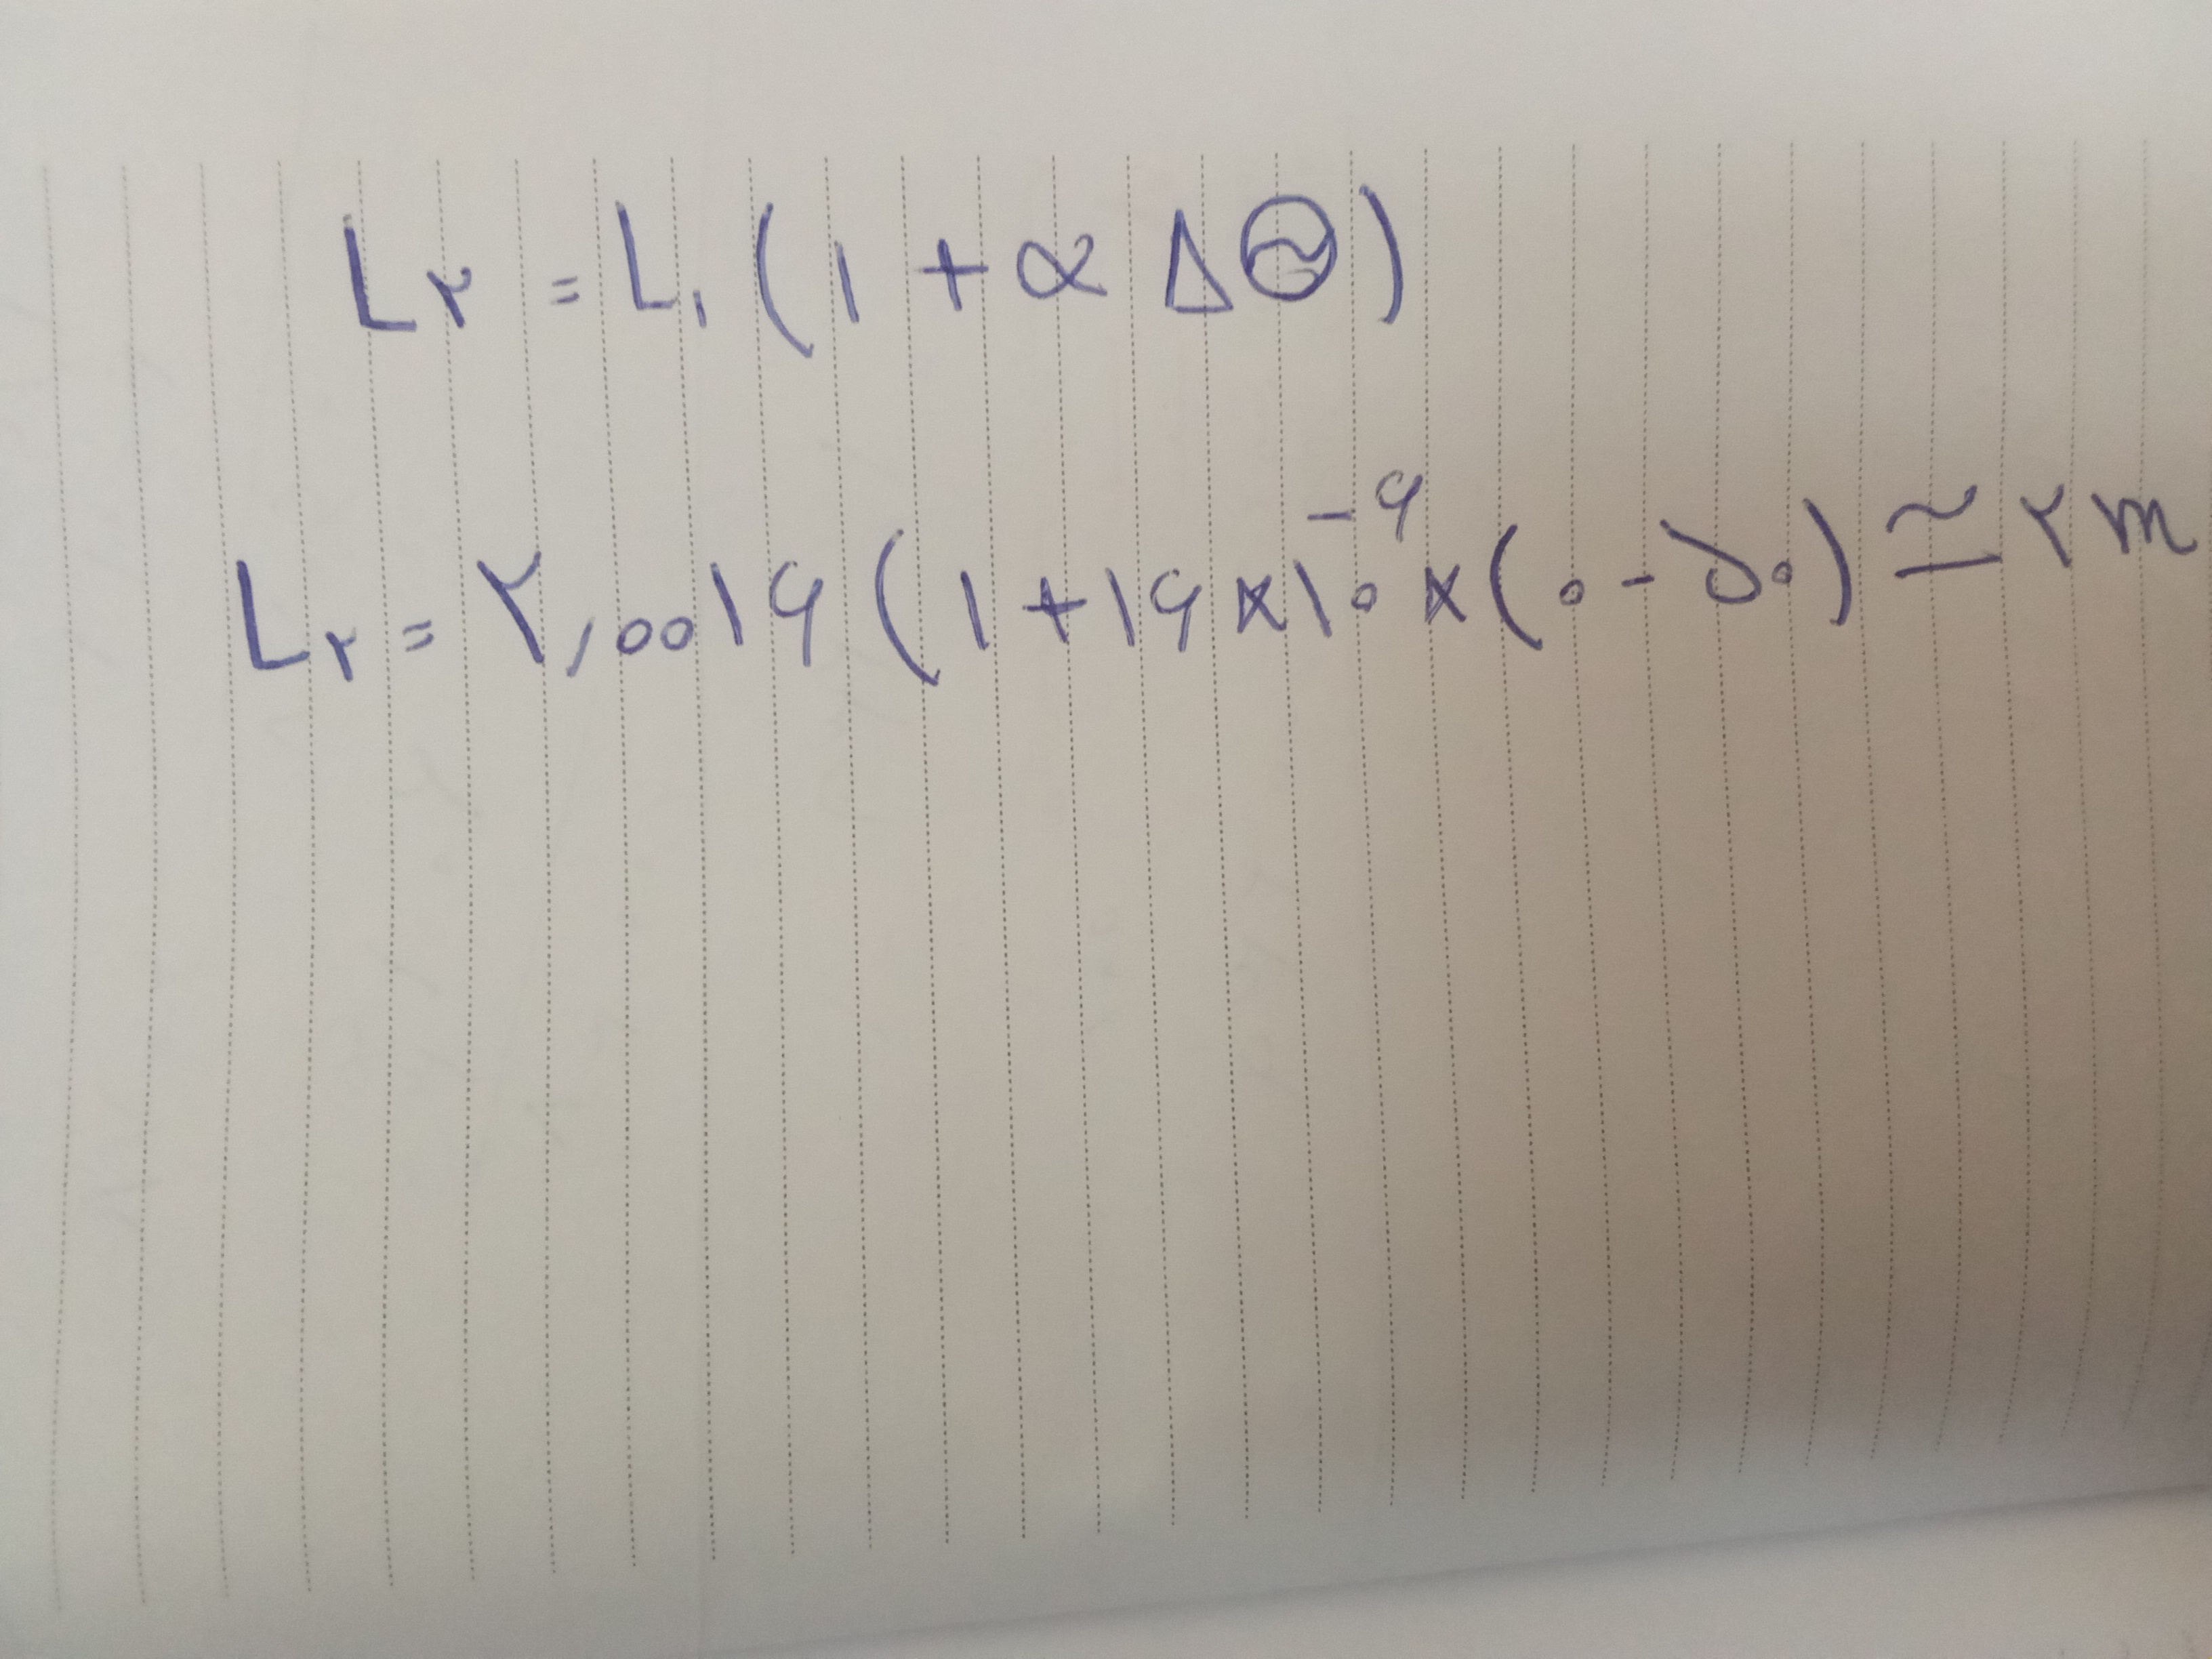 L۲ = L۱ (۱ + α ΔΘ)
L۲ = ۲,۰۰۱۶ (۱ + ۱۶ × ۱۰⁻۶ × (۰ - ۵۰) ≃ ۲ m